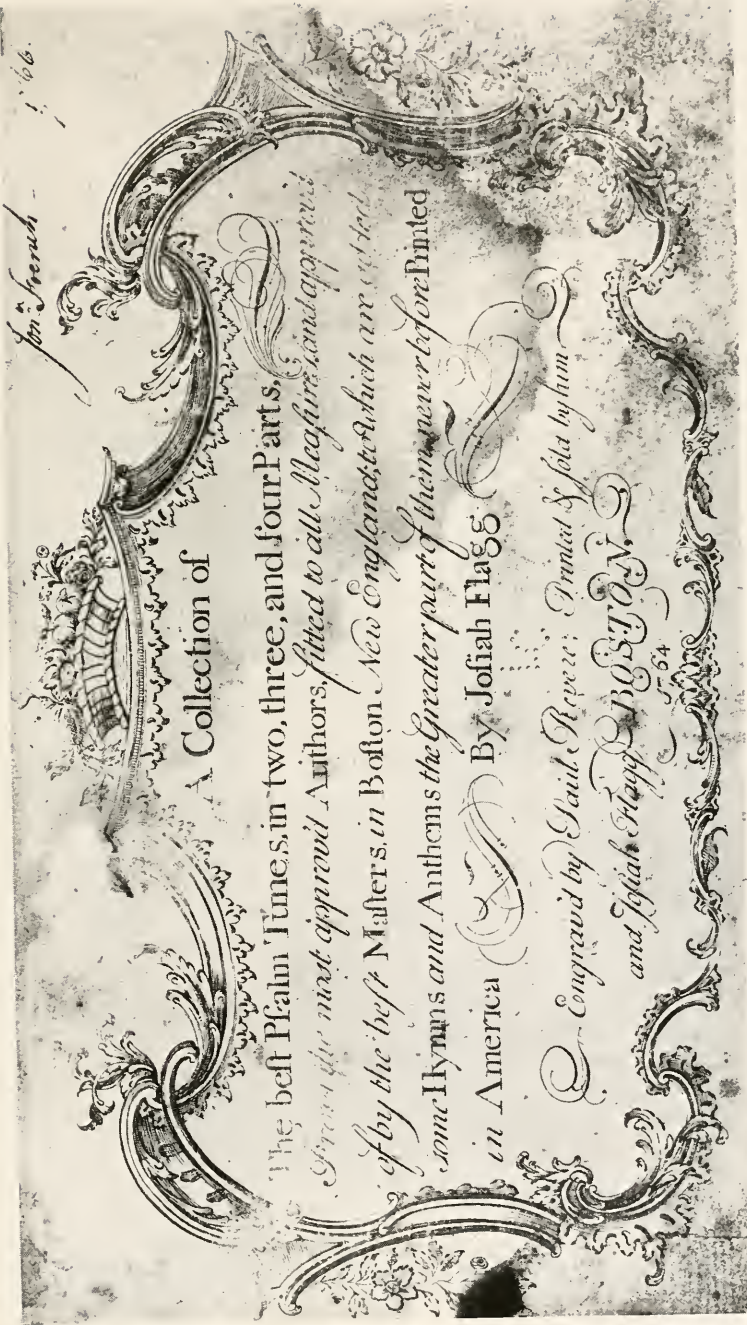 Jonn. French -
1766.
A Collection of
The beſt Pſalm Tunes, in two, three, and four Parts,
From the most approv'd Authors, fitted to all Meaſures, and approv'd
of by the beſt Maſters in Boſton New England; to which are added
some Hymns and Anthems the Greater part of them never before Printed
in America By Joſiah Flagg
Engrav'd by Paul Revere: Printed & ſold by him
and Joſiah Flagg BOSTON.
1764